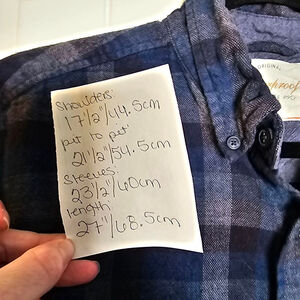 shoulders:
17 1/2"/44.5cm
pit to pit
21 1/2"/54.5cm
Sleeves:
23 1/2"/60cm
length:
27"/68.5cm
ORIGINAL